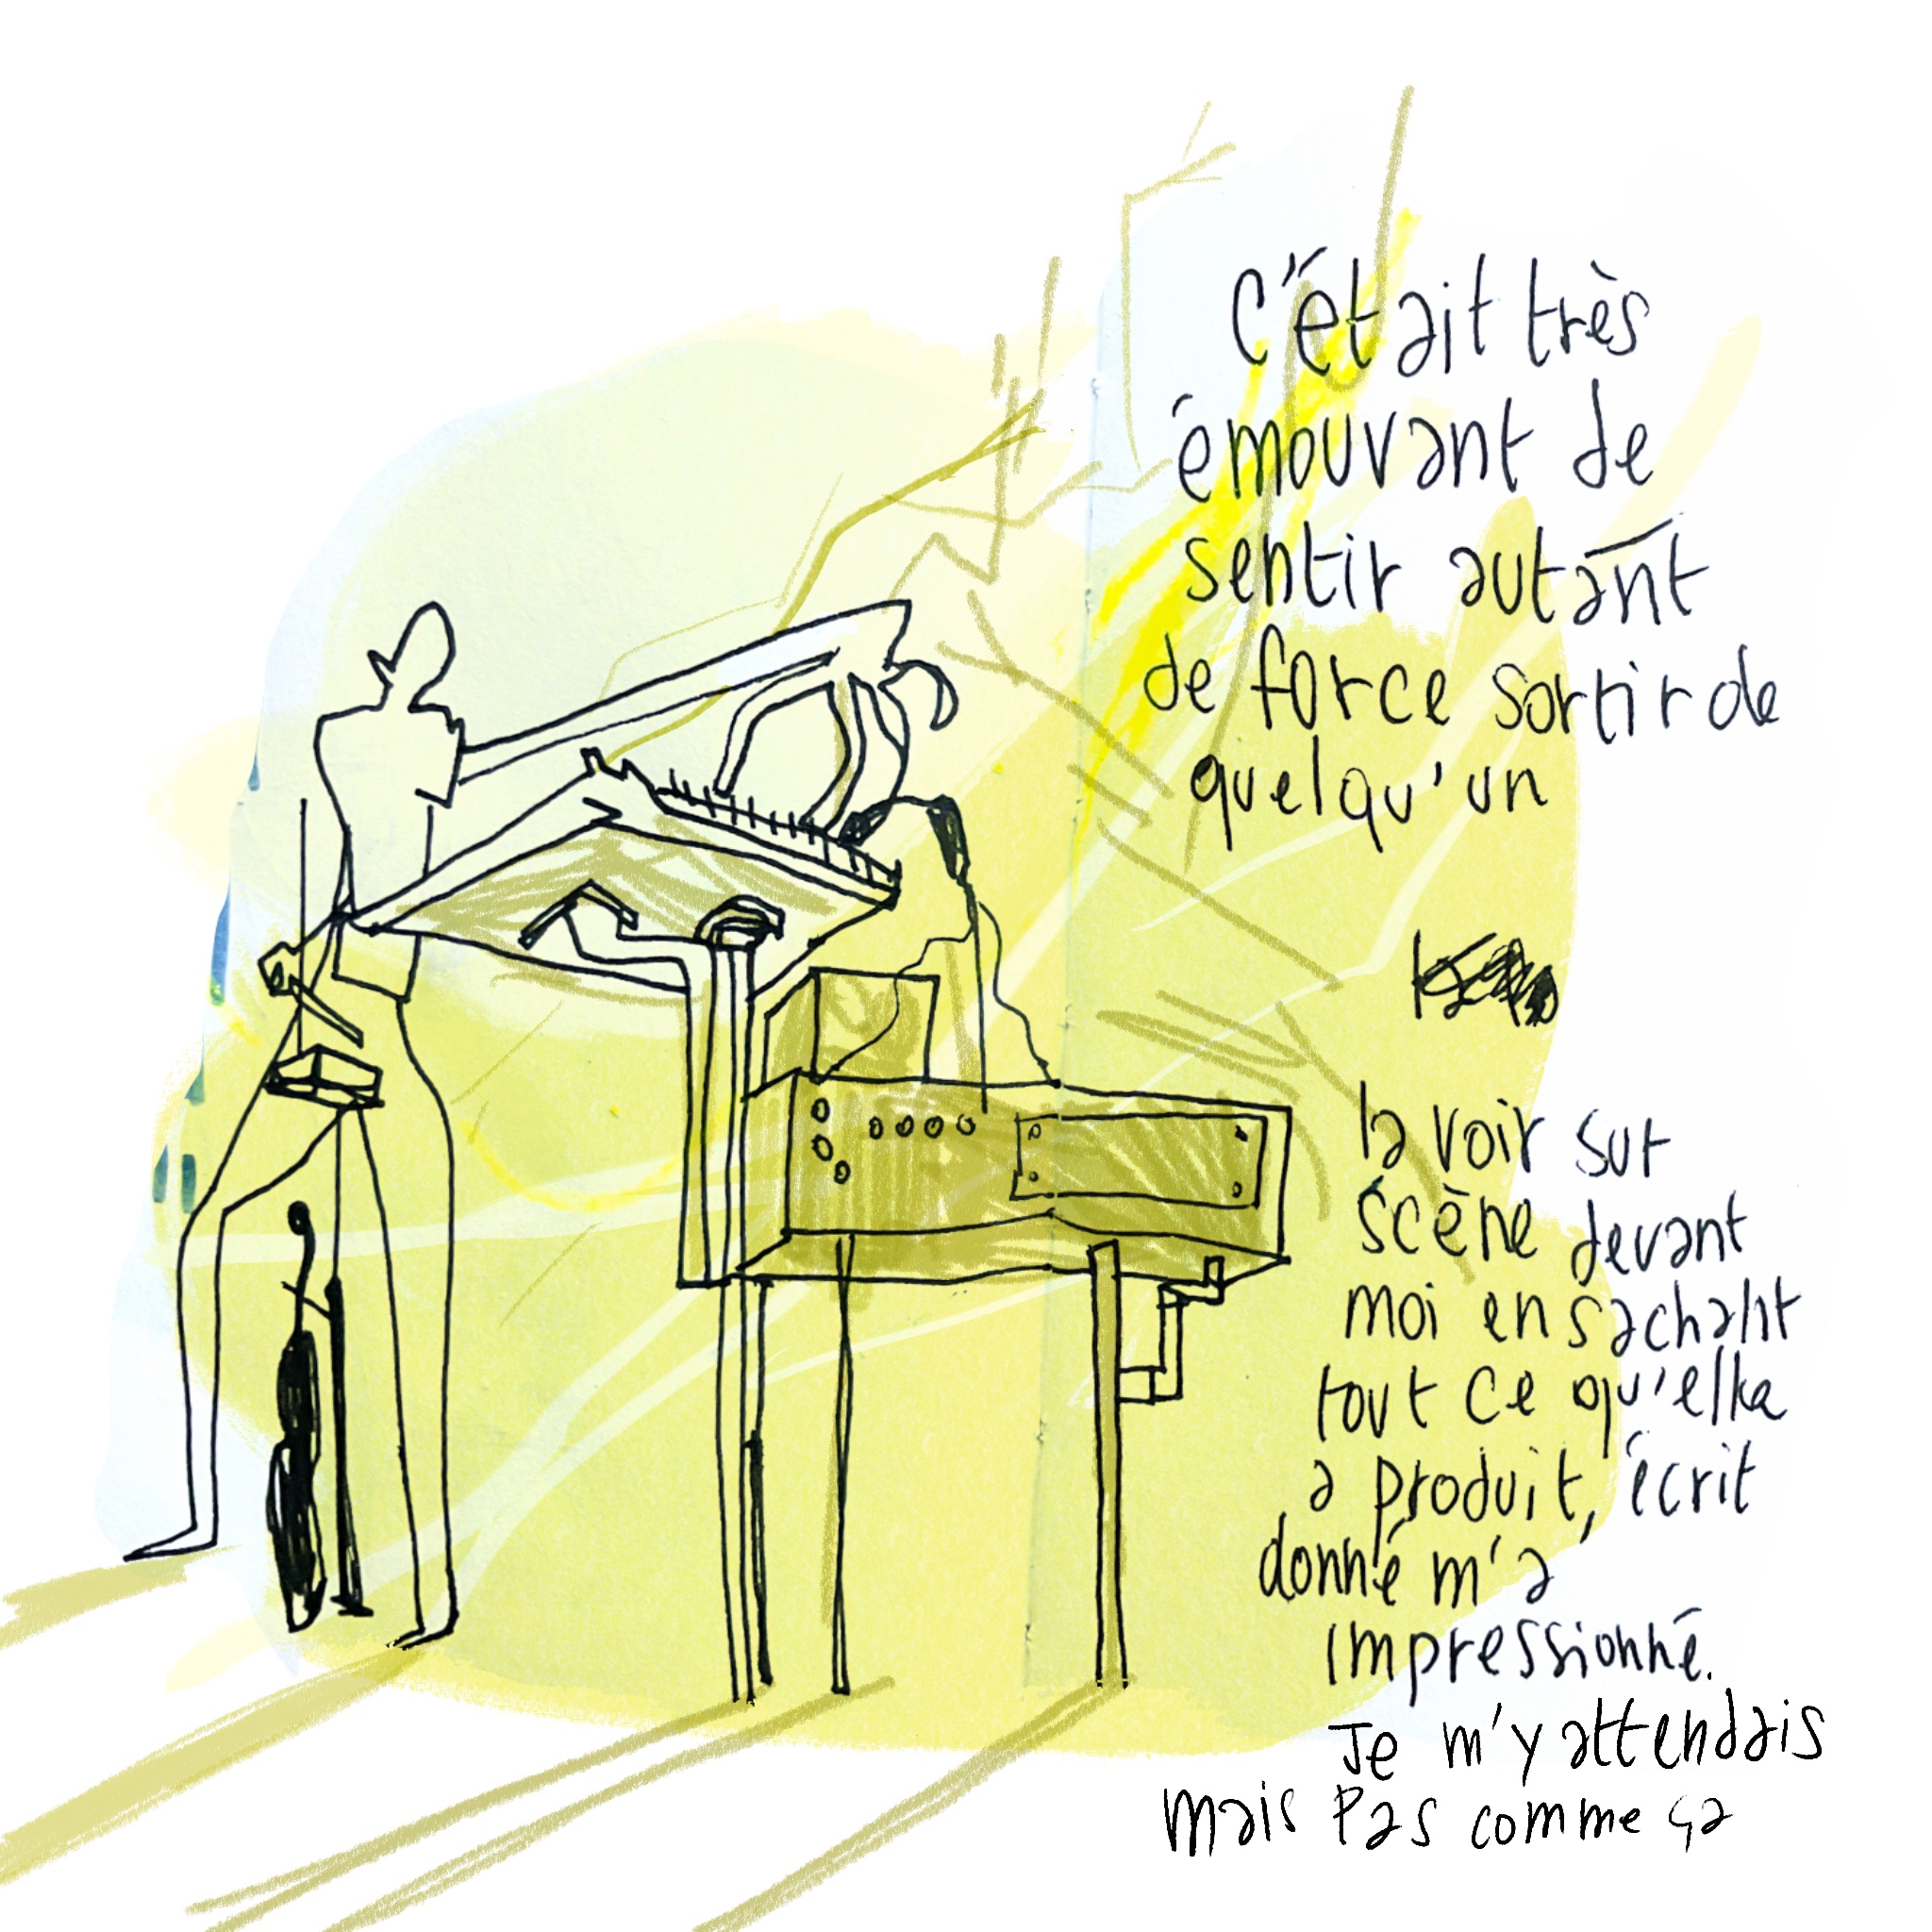 C'était très
émouvant de
sentir autant
de force sortir de
quelqu'un
la voir sur
scène devant
moi en sachant
tout ce qu'elle
a produit, écrit
donné m'a
impressionné.
Je m'y attendais
mais pas comme ça